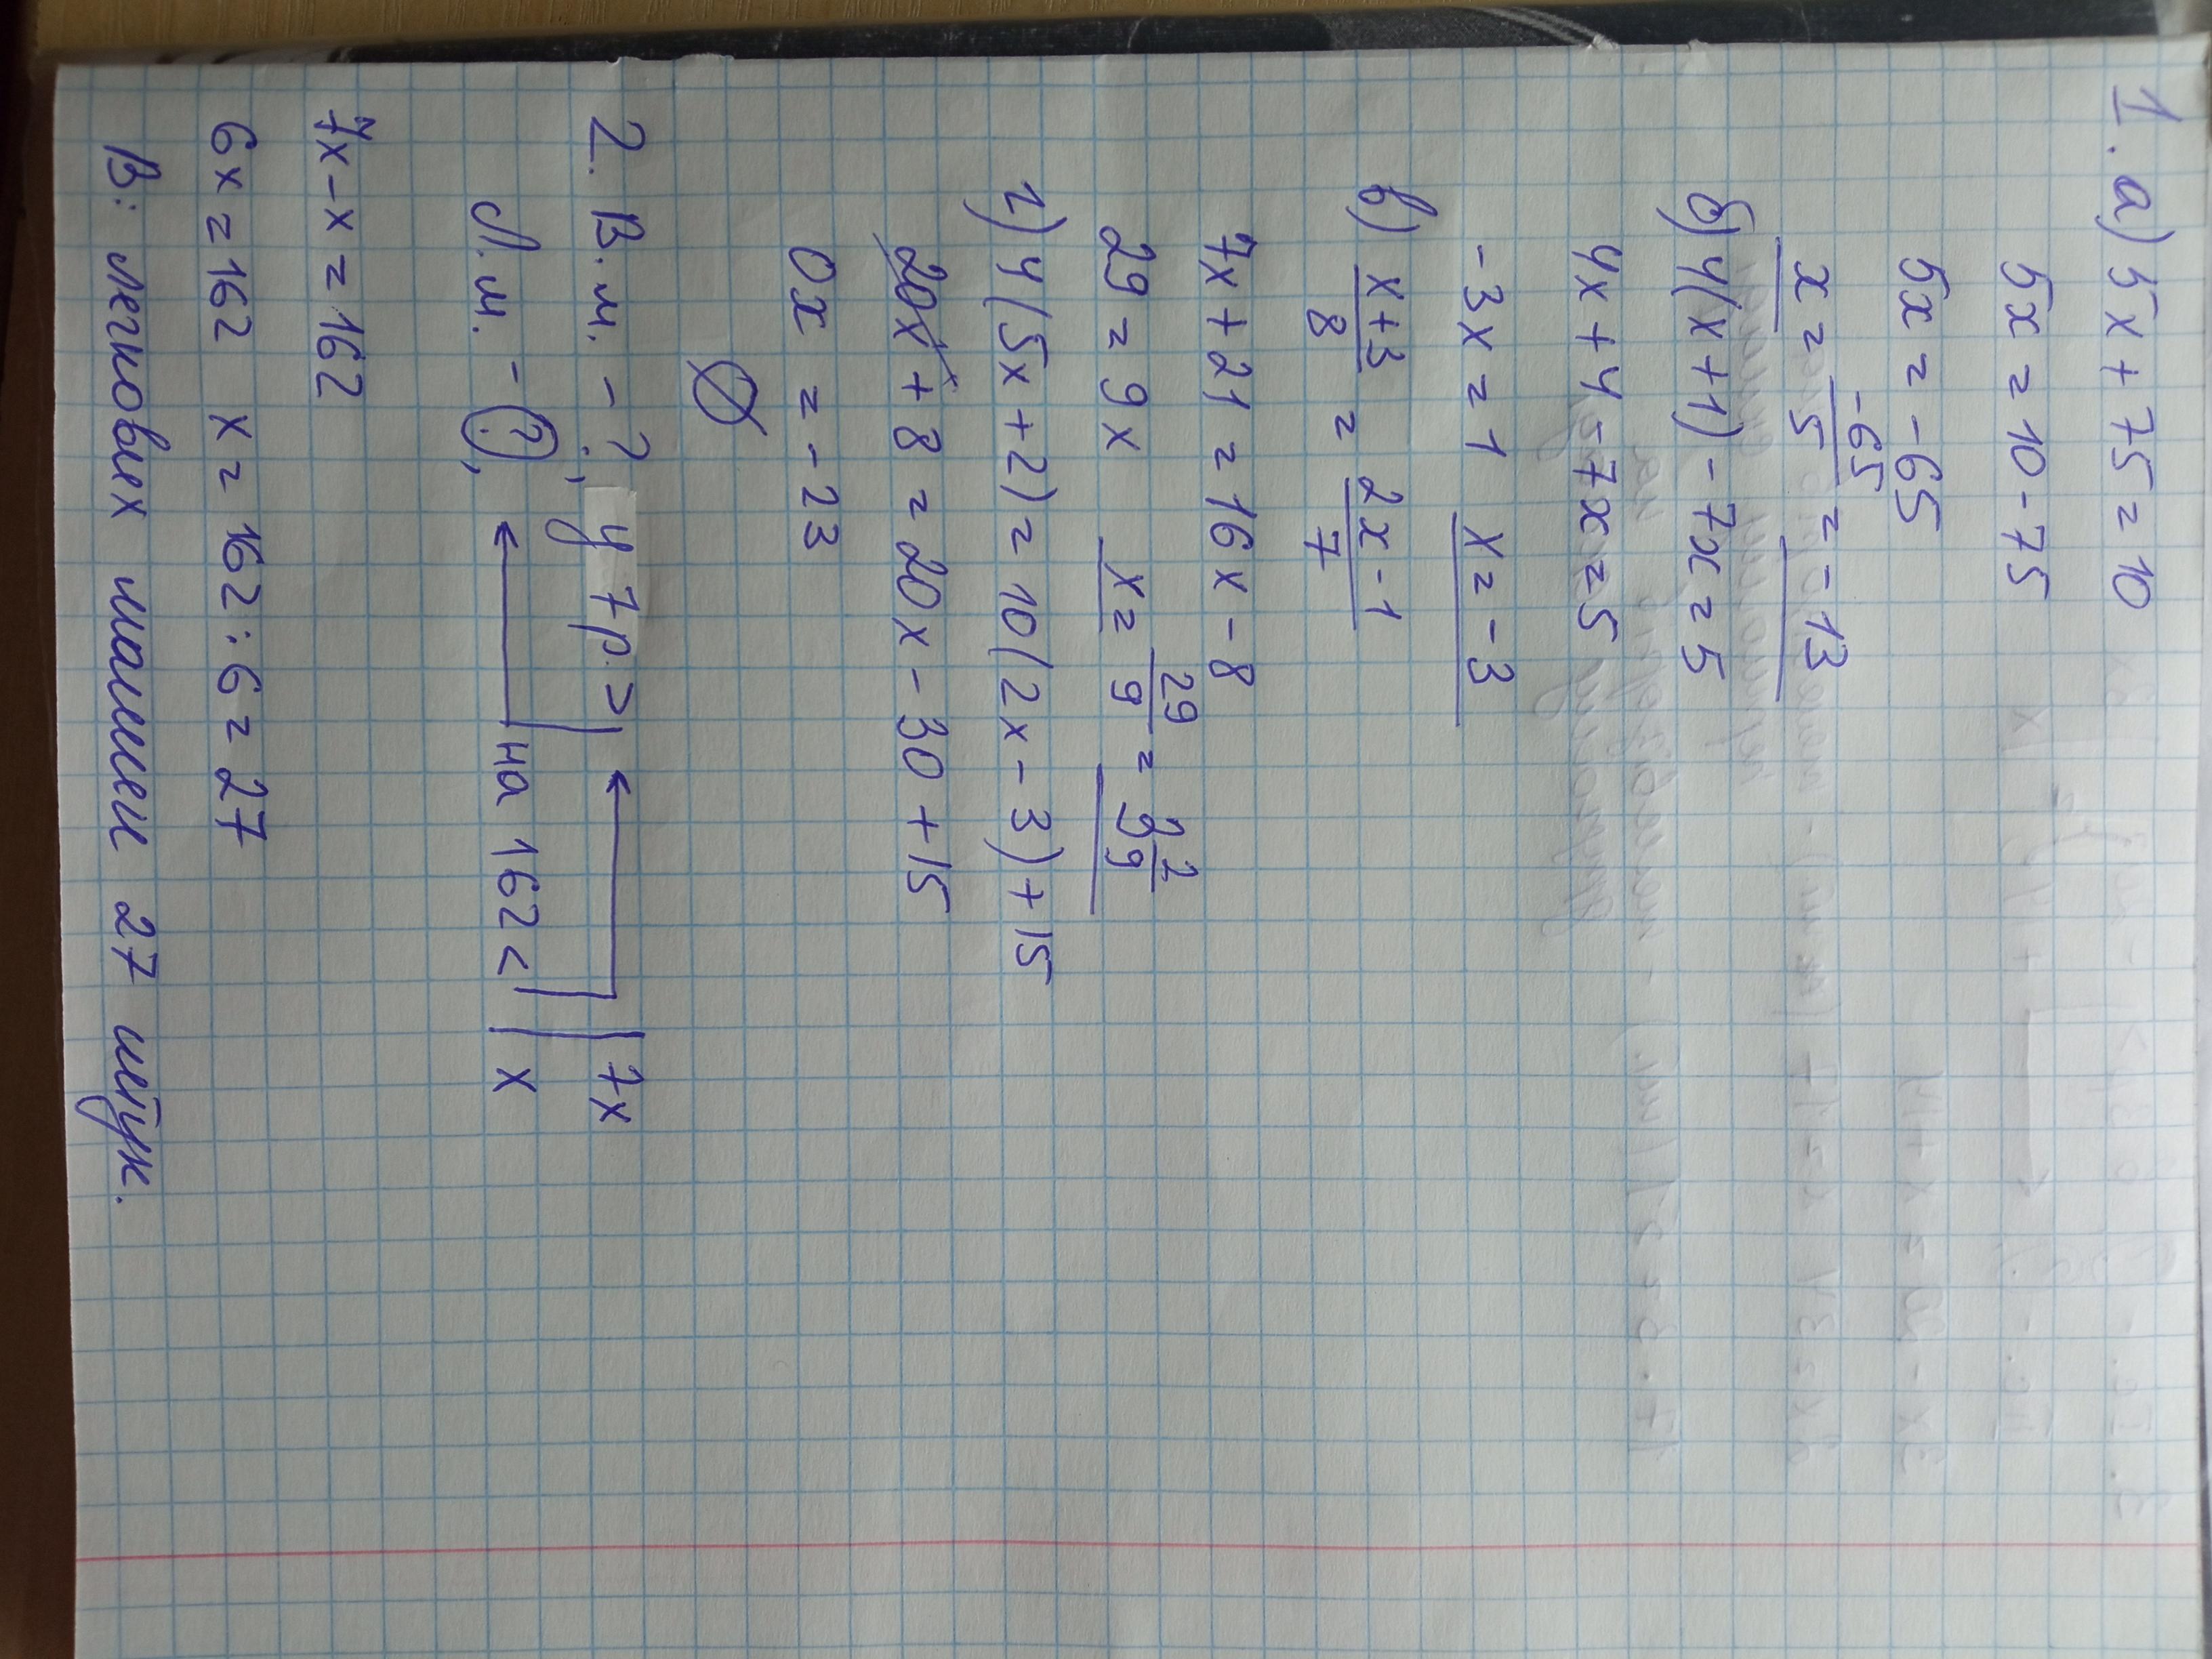 1. а) 5x + 75 = 10
5x = 10 - 75
5x = -65
x = -65/5 = -13
б) 4(x+1) - 7x = 5
4x + 4 - 7x = 5
-3x = 1 x = -3
в) x+3/8 = 2x-1/7
7x + 21 = 16x - 8
29 = 9x x = 29/9 = 3 2/9
г) 4(5x+2) = 10(2x-3)+15
20x + 8 = 20x - 30 + 15
0x = -23
∅
2. В.м. - ?, у 7 р. > 7x
Л.м. - ?, на 162 < x
7x - x = 162
6x = 162 x = 162 : 6 = 27
В: легковых машин 27 штук.